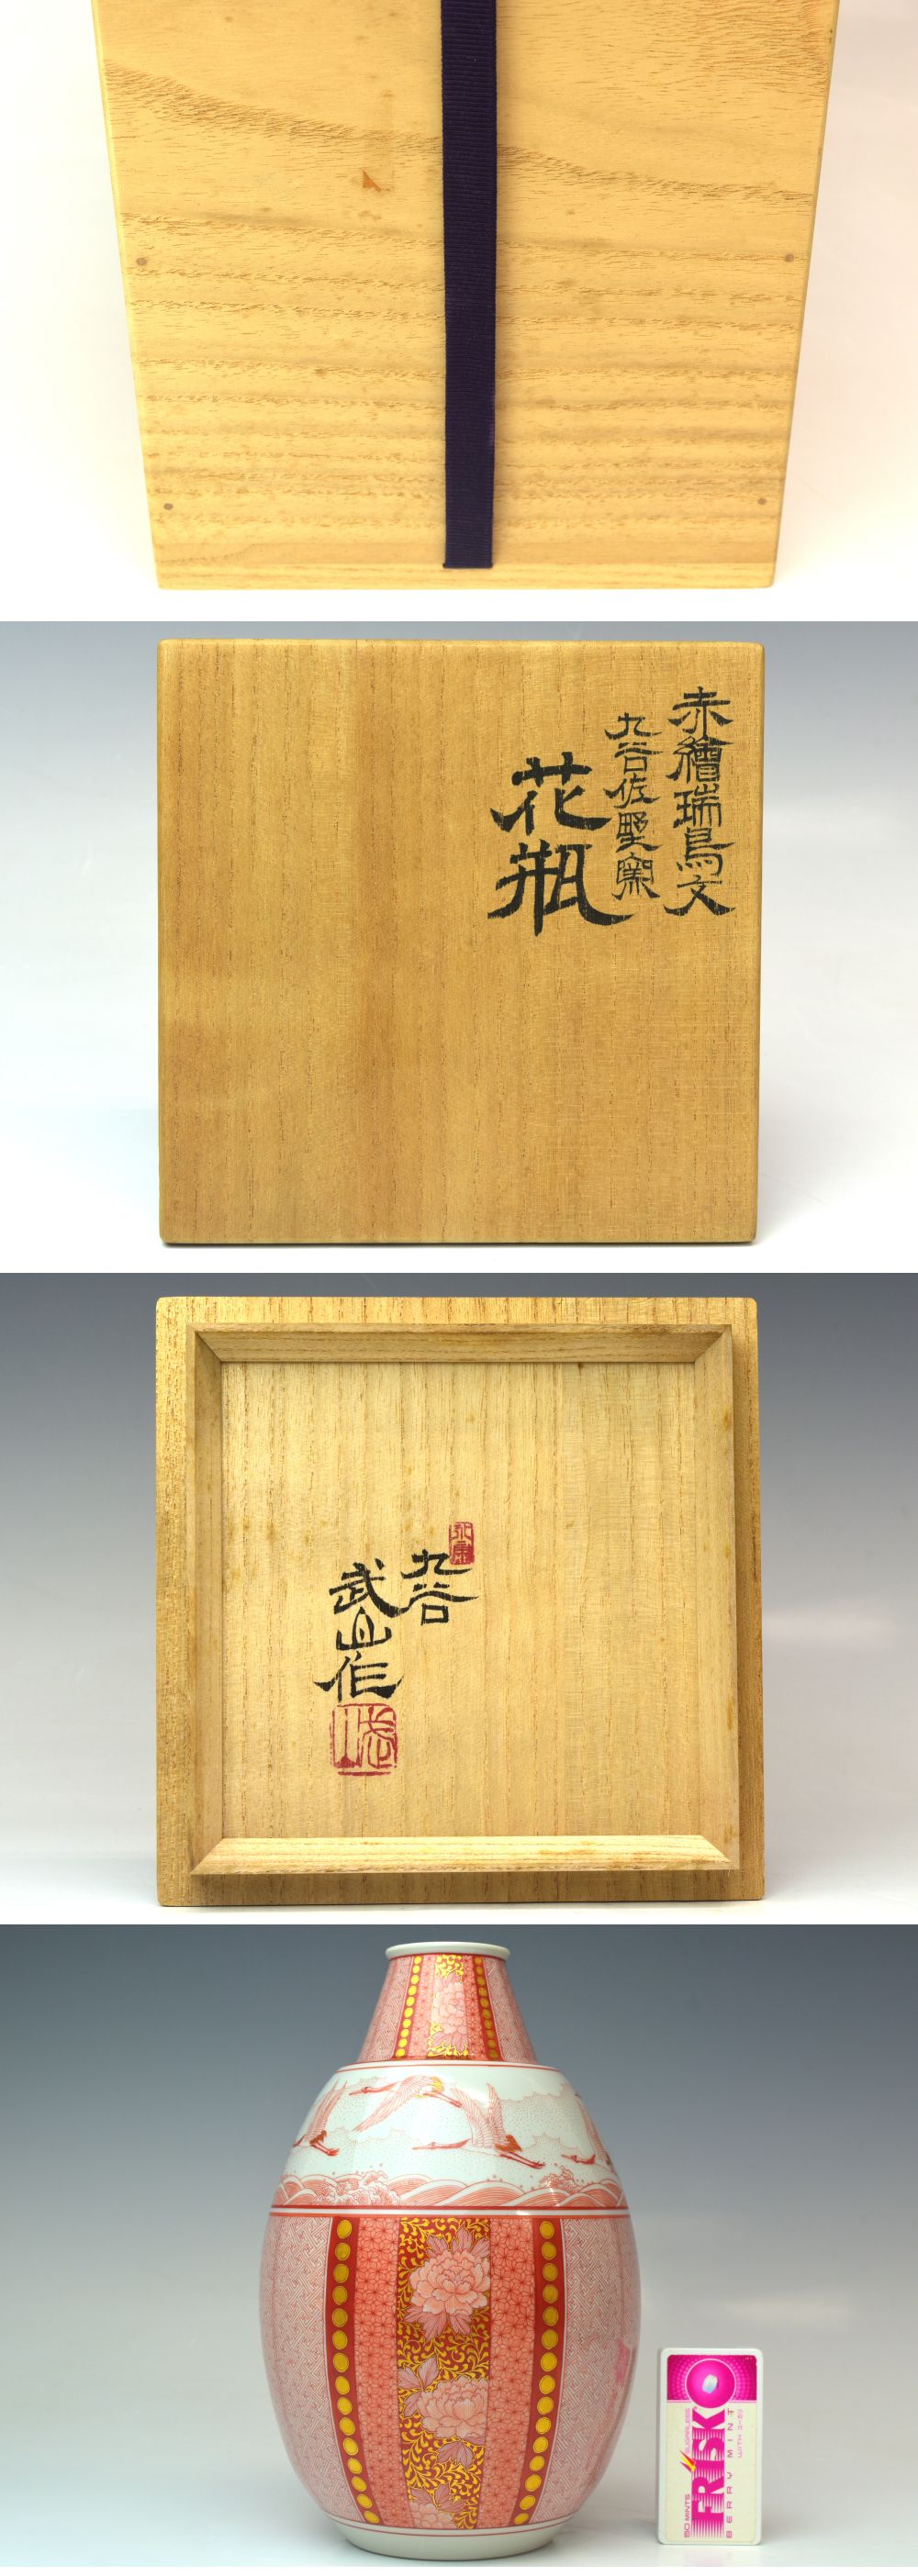 赤繪瑞鳥文
九谷佐野窯
花瓶
九谷
武山作
50 MINTS
SUGARLESS
FRISK
BERRY MINT